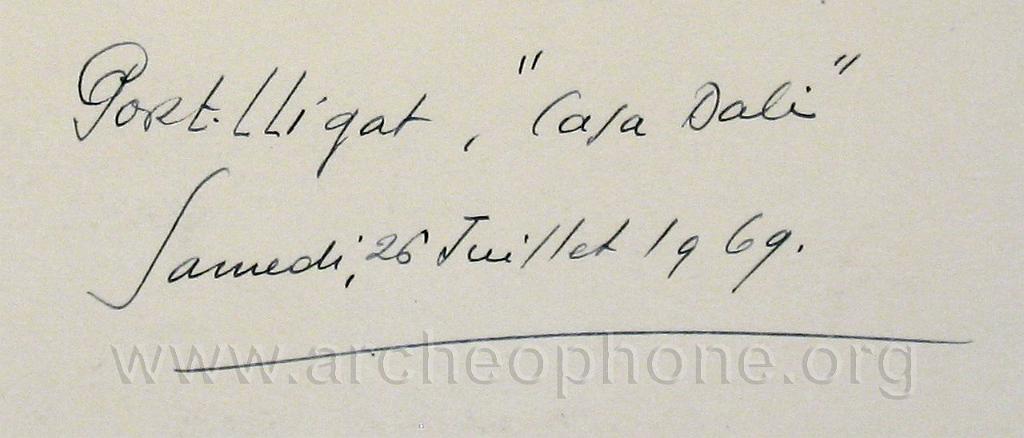 Port.Lligat, "Casa Dali"
Samedi, 26 Juillet 1969.
www.archeophone.org